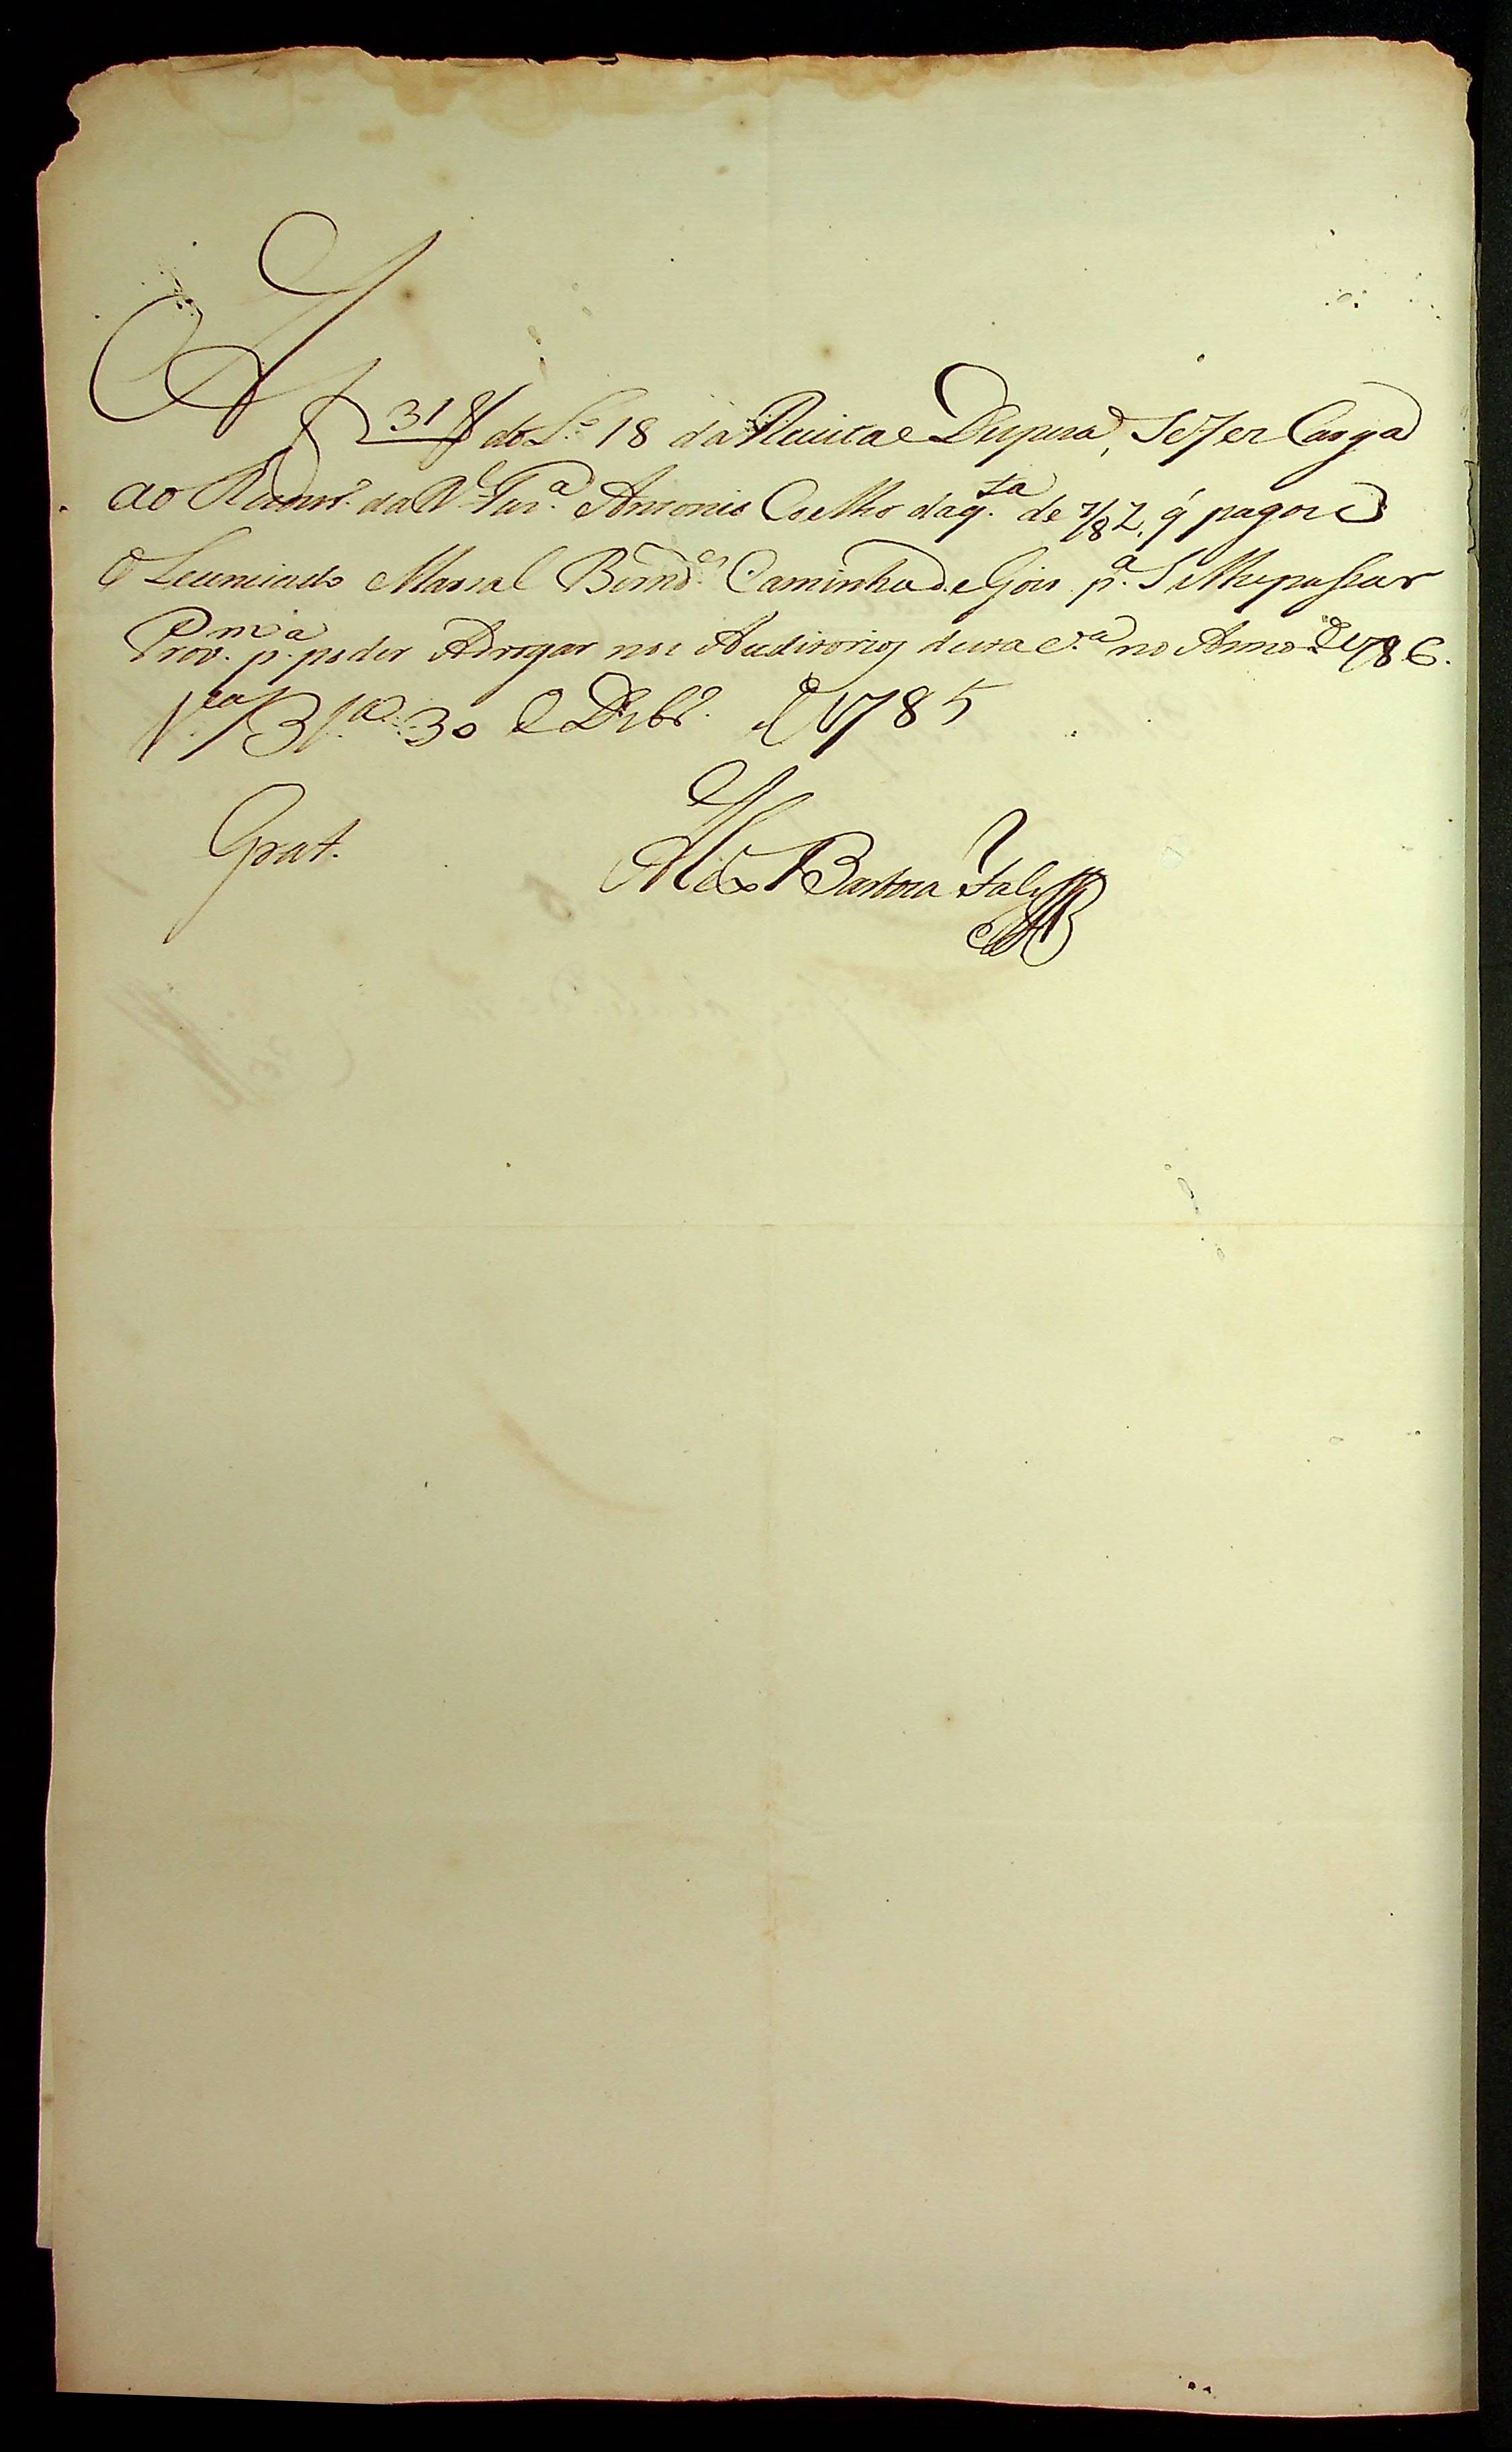 A f 318 do L.º 18 da Receita e Despeza, Se fez Carga
ao Recbr.º da R.l Faz.ª Antonio Coelho da q.ta de 7/8 q' pagou
o Lecenciado Marsal Bernd.es Caminha de Gois p.ª Se lhe passar
Prov.m p.ª poder Advogar nos Auditorios desta C.ª no Anno de 1786.
V.ª B.ª 30 de Dezbr.º de 1785
Grat.
Alex.e Barboza